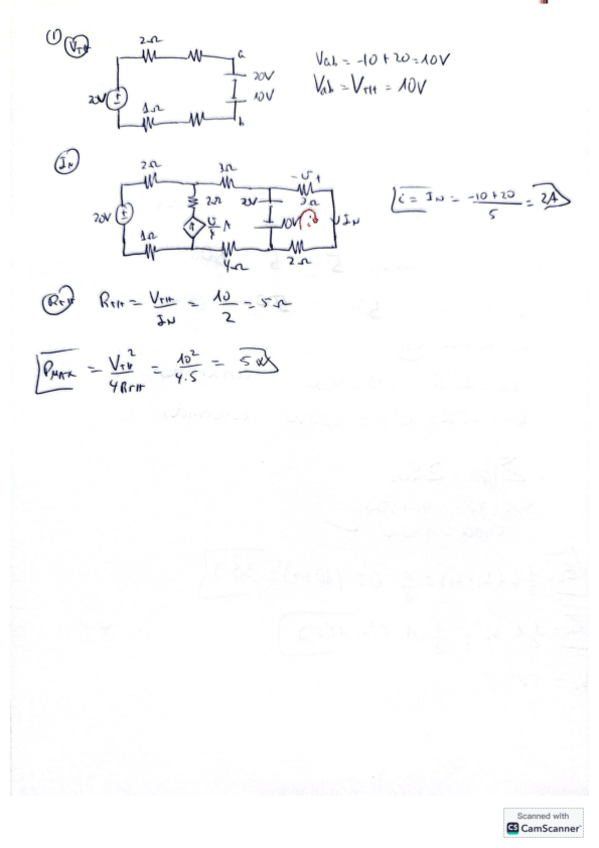 (1) VTH
2Ω
a
20V
10V
20V
1Ω
b
Vab = -10 + 20 = 10V
Vab = VTH = 10V
IN
2Ω
3Ω
- U +
3Ω
2Ω
20V
10V
i
IN
20V
A
1Ω
4Ω
2Ω
i = IN = (-10 + 20)/5 = 2A
RTH RTH = VTH/IN = 10/2 = 5Ω
PMAX = VTH²/4RTH = 10²/4.5 = 5W
Scanned with
CS CamScanner